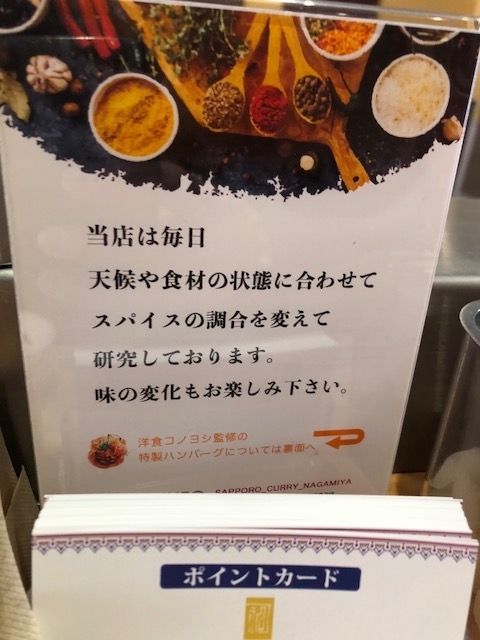 当店は毎日
天候や食材の状態に合わせて
スパイスの調合を変えて
研究しております。
味の変化もお楽しみ下さい。
洋食コノヨシ監修の
特製ハンバーグについては裏面へ。
SAPPORO_CURRY_NAGAMIYA
ポイントカード